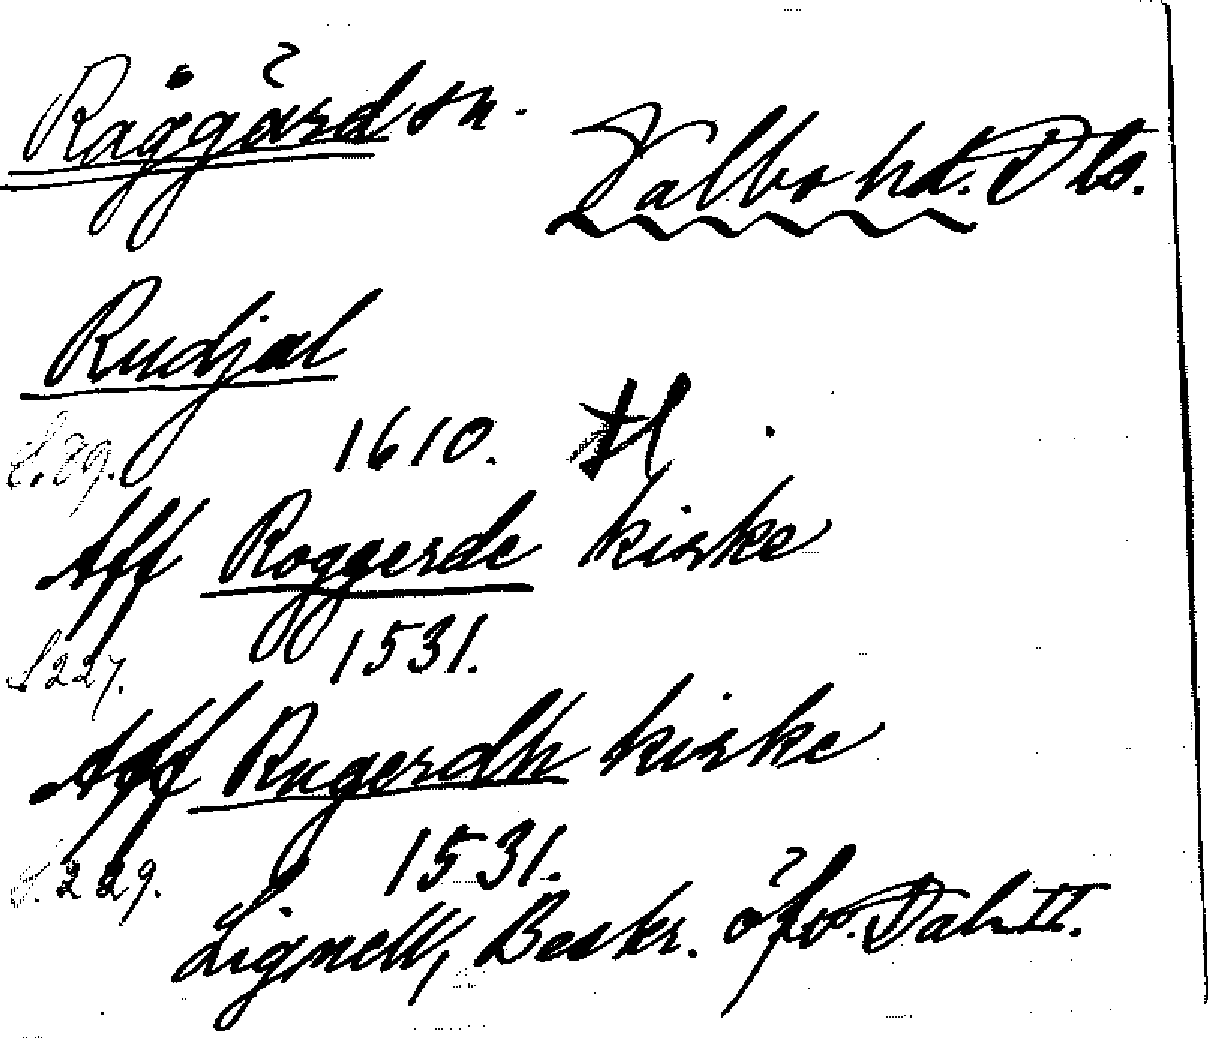 Råggärd sn.
Valbo hd. Dls.
Rudjal
S. 89. 1610.
Aff Roggerde kirke
S 227. 1531.
Aff Rugerdh kirke
S. 229. 1531.
Lignell, Beskr. öfv. Dal II.